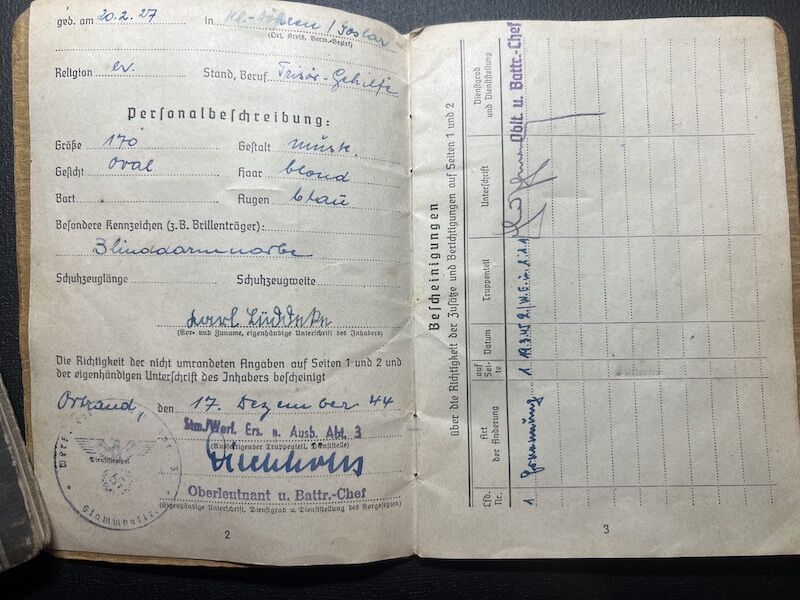 geb. am 20.2.27 in Kl.-Döhren / Goslar
(Ort, Kreis, Verw.-Bezirk)
Religion ev. Stand, Beruf Frisör-Gehilfe
Personalbeschreibung:
Größe 170 Gestalt musk.
Gesicht oval Haar blond
Bart Augen blau
Besondere Kennzeichen (z.B. Brillenträger):
Blinddarmnarbe
Schuhzeuglänge Schuhzeugweite
Karl Lüddeke
(Vor- und Zuname, eigenhändige Unterschrift des Inhabers)
Die Richtigkeit der nicht umrandeten Angaben auf Seiten 1 und 2 und
der eigenhändigen Unterschrift des Inhabers bescheinigt
Ortrand, den 17. Dezember 44
Stm./Werf. Ers. u. Ausb. Abt. 3
(Ausfertigender Truppenteil, Dienststelle)
Oberleutnant u. Battr.-Chef
(Eigenhändige Unterschrift, Dienstgrad u. Dienststellung des Vorgesetzten)
Dienststempel
Stammbattr.
2
Bescheinigungen
über die Richtigkeit der Zusätze und Berichtigungen auf Seiten 1 und 2
Lfd. Nr. Art der Änderung auf Sei- te Datum Truppenteil Unterschrift Dienstgrad und Dienststellung
1 Ernennung 1 19.3.45 Oblt. u. Battr.-Chef
3